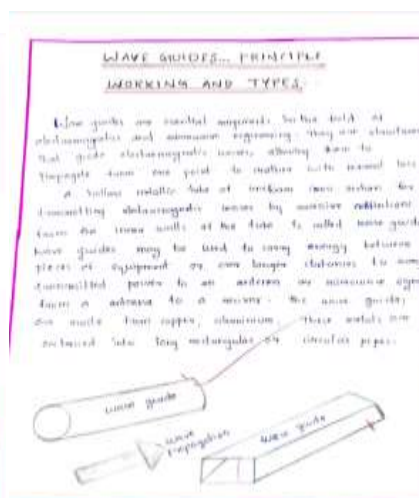 WAVE GUIDES... PRINCIPLE
WORKING AND TYPES.
Wave guides are essential components in the field of
electromagnetics and microwave engineering. They are structures
that guide electromagnetic waves, allowing them to
propagate from one point to another with minimal loss
A hollow metallic tube of uniform cross section for
transmitting electromagnetic waves by successive reflections
from the inner walls of the tube is called wave guide
wave guides may be used to carry energy between
pieces of equipment or over longer distances to carry
transmitted power to an antenna or microwave signals
from a antenna to a receiver. The wave guides
are made from copper, aluminium. These metals are
extruded into long rectangular or circular pipes.
wave guide
wave
propagation
wave guide